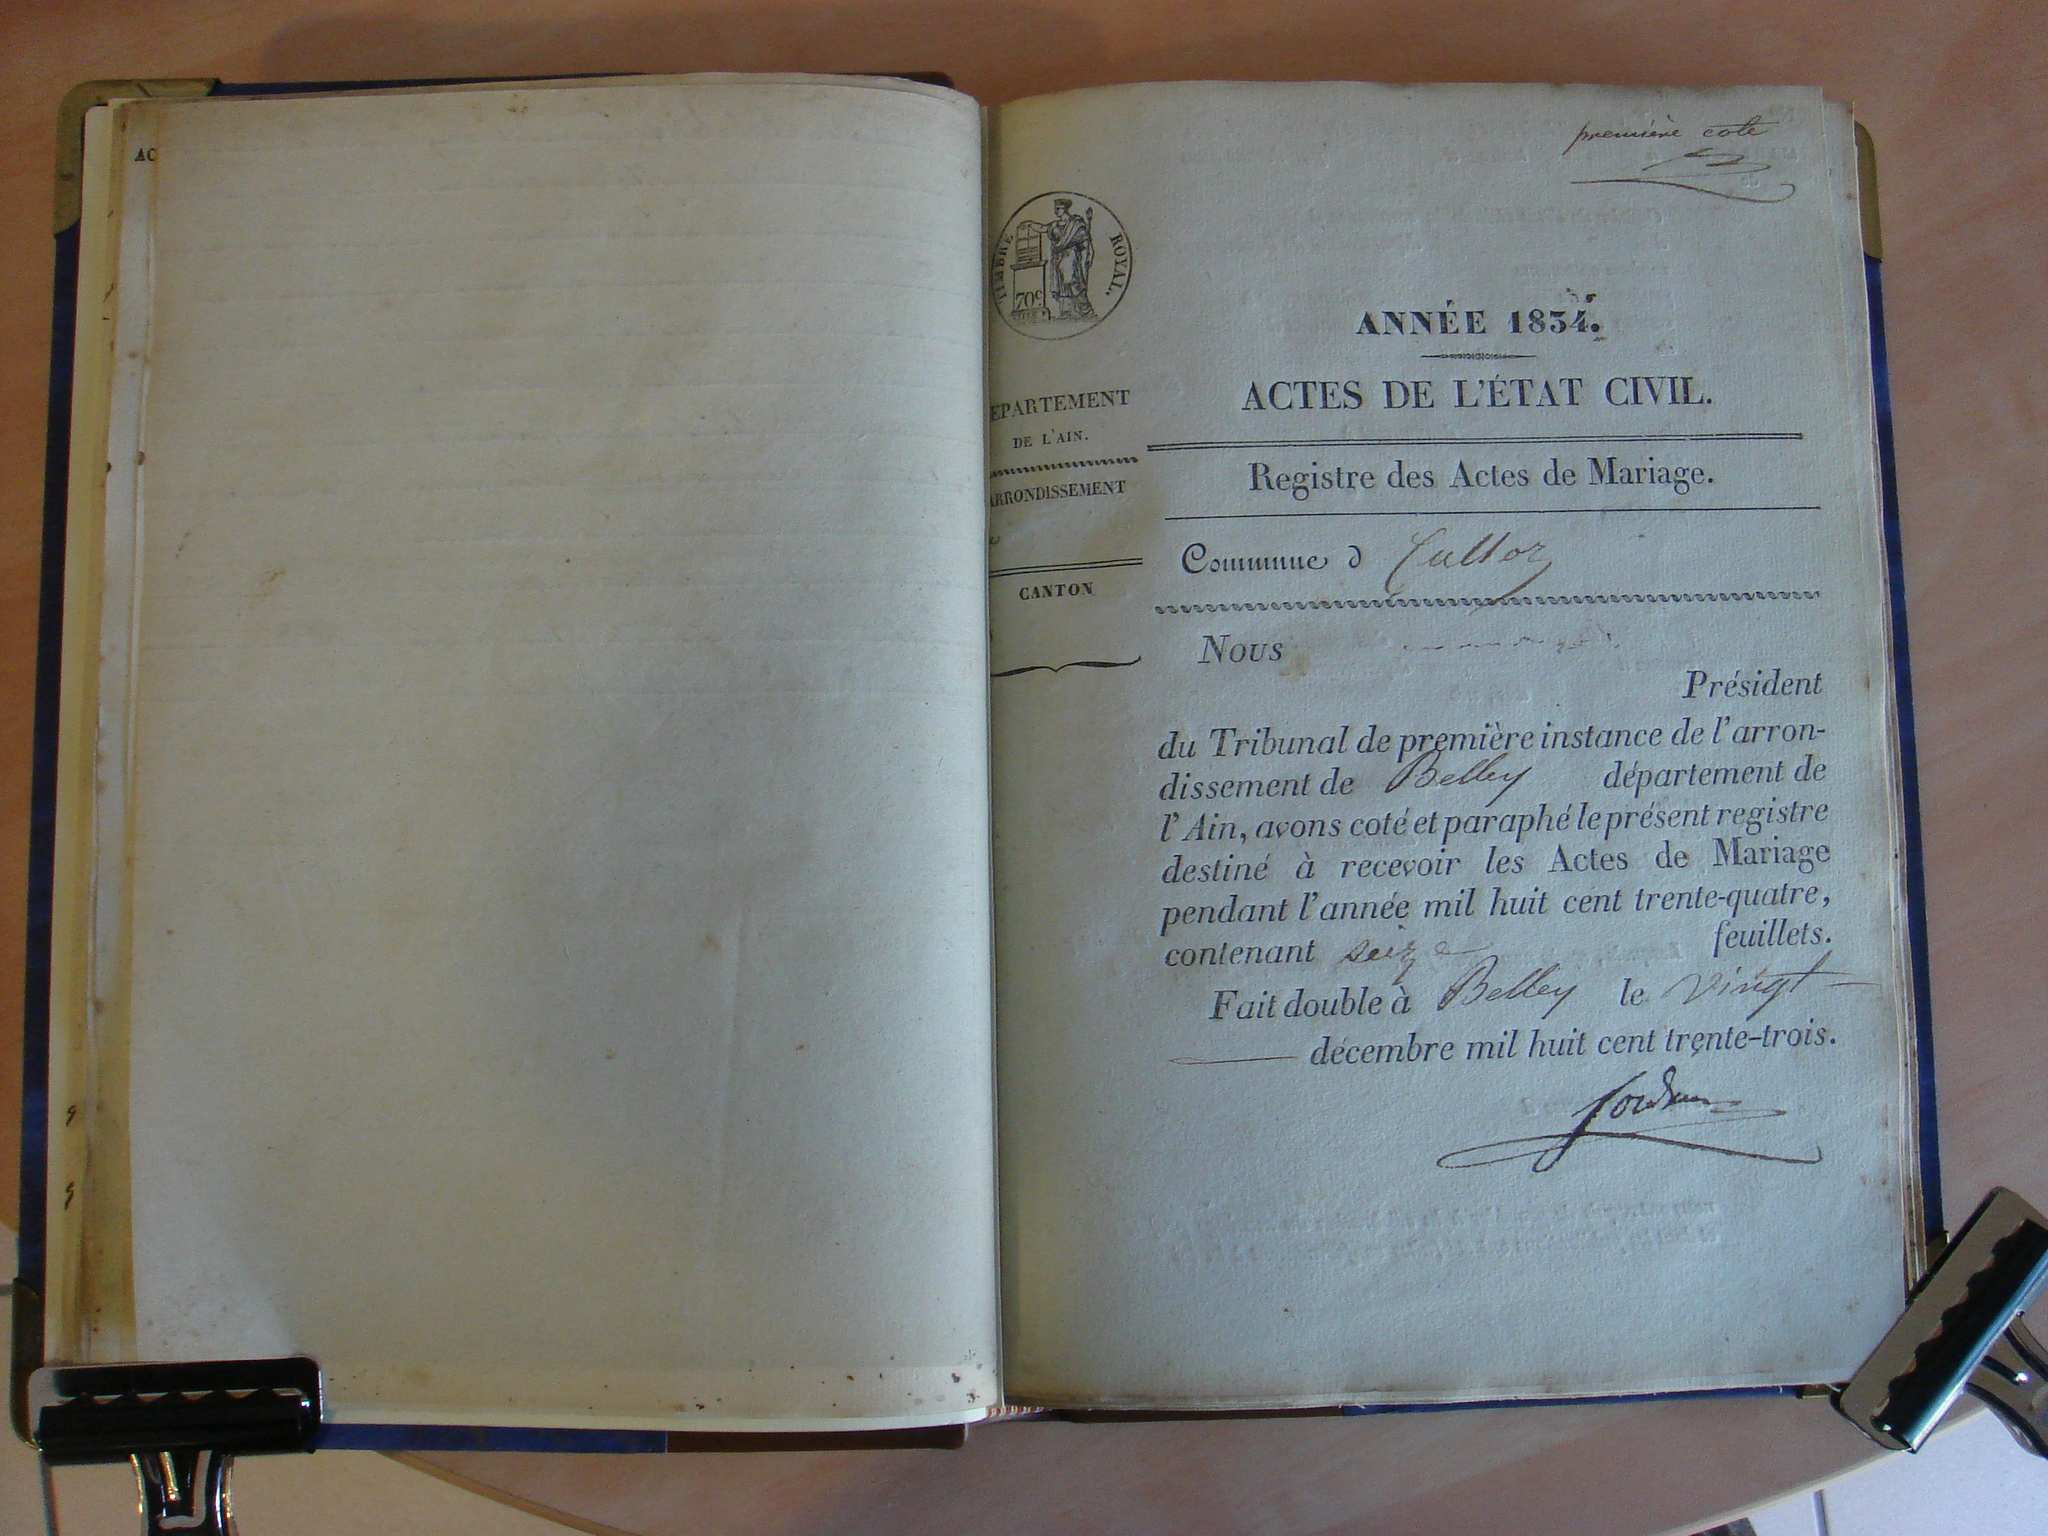 AC
première cote
TIMBRE ROYAL.
70c
ANNÉE 1834.
ACTES DE L'ÉTAT CIVIL.
EPARTEMENT
DE L'AIN.
Registre des Actes de Mariage.
ARRONDISSEMENT
Commune d Culloz
CANTON
Nous
Président
du Tribunal de première instance de l'arron-
dissement de Belley département de
l'Ain, avons coté et paraphé le présent registre
destiné à recevoir les Actes de Mariage
pendant l'année mil huit cent trente-quatre,
contenant seize feuillets.
Fait double à Belley le vingt
décembre mil huit cent trente-trois.